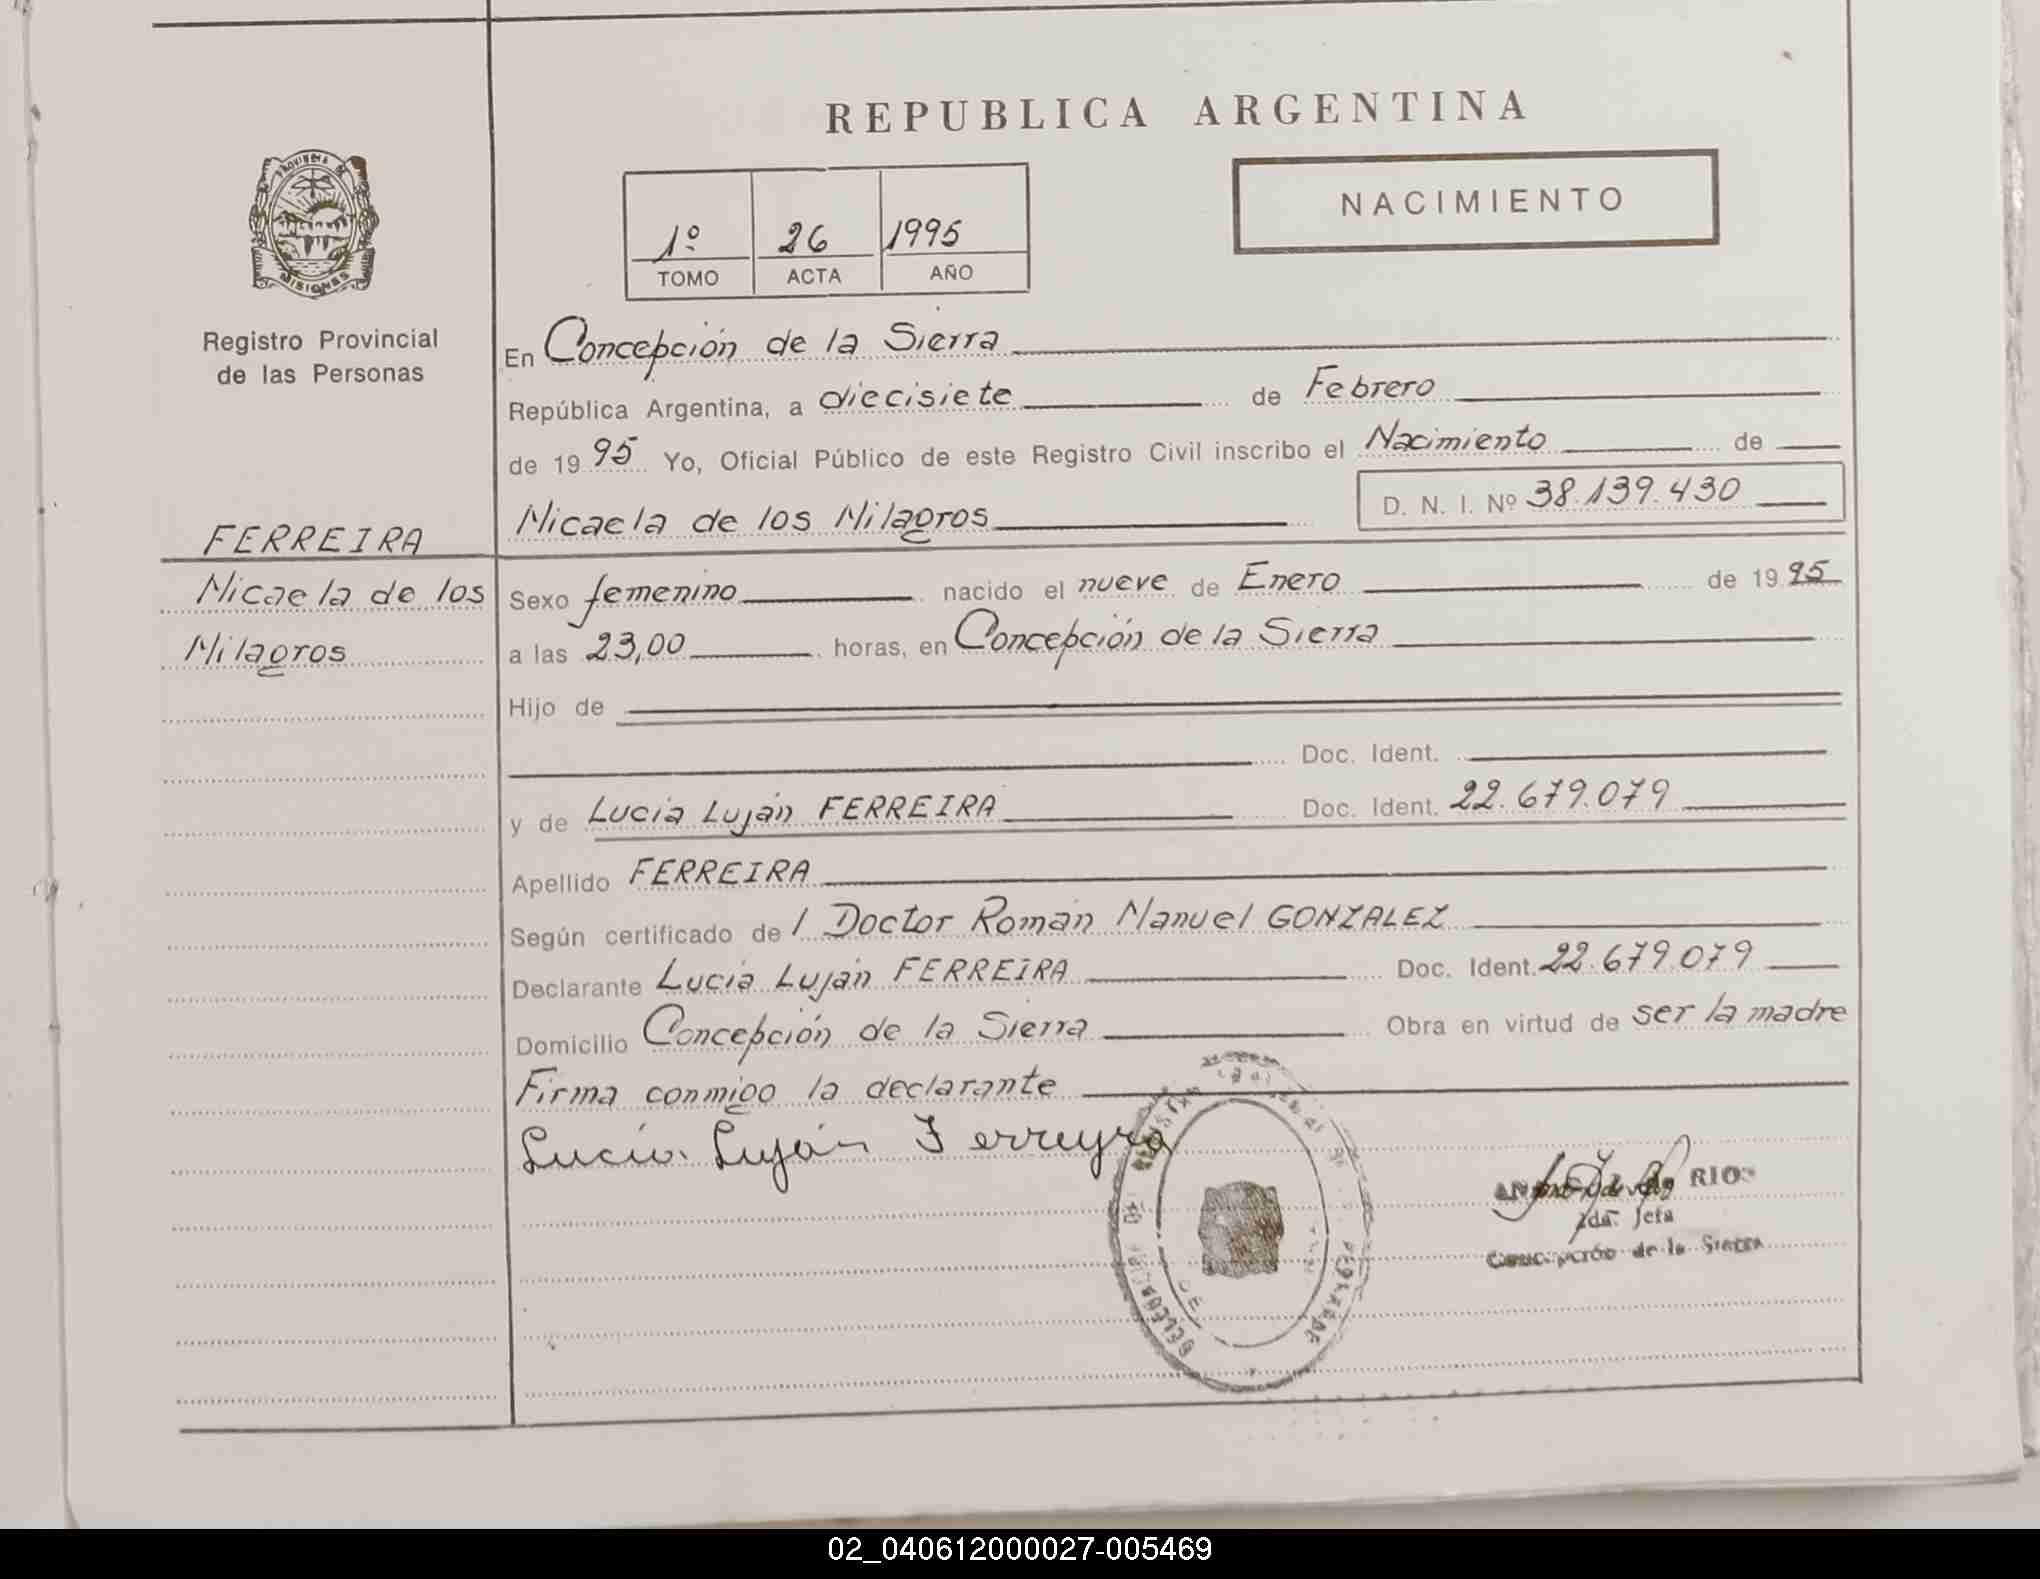 REPUBLICA ARGENTINA
PROVINCIA DE
MISIONES
NACIMIENTO
1º 26 1995
TOMO ACTA AÑO
Registro Provincial
de las Personas
En Concepción de la Sierra
República Argentina, a diecisiete de Febrero
de 1995 Yo, Oficial Público de este Registro Civil inscribo el Nacimiento de
D. N. I. Nº 38.139.430
Micaela de los Milagros
FERREIRA
Micaela de los
Milagros
Sexo femenino nacido el nueve de Enero de 1995
a las 23,00 horas, en Concepción de la Sierra
Hijo de
Doc. Ident.
y de Lucia Luján FERREIRA Doc. Ident. 22.679.079
Apellido FERREIRA
Según certificado de l Doctor Román Manuel GONZALEZ
Declarante Lucia Luján FERREIRA Doc. Ident. 22.679.079
Domicilio Concepción de la Sierra Obra en virtud de ser la madre
Firma conmigo la declarante
Lucia Luján Ferreyra
RIOS
2da. Jefa
Concepción de la Sierra
02_040612000027-005469